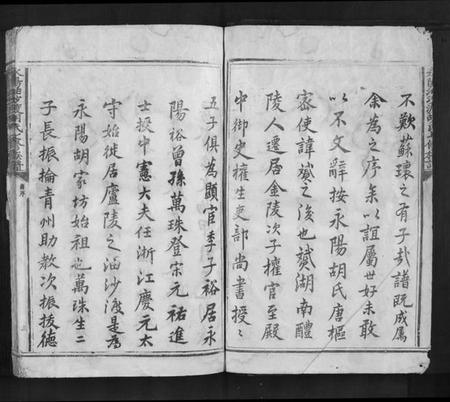 不歎蘇瓌之有子哉譜既成屬
余為之序余以誼屬世好未敢
以不文辭按永陽胡氏唐樞
密使諱贇之後也贇湖南醴
陵人遷居金陵次子權官至殿
中御史權生吏部尚書授
五子俱為顯官季子裕居永
陽裕曾孫萬珠登宋元祐進
士授中憲大夫任浙江慶元太
守始徙居廬陵之泊沙渡是為
永陽胡家坊始祖也萬珠生二
子長振掄青州助教次振拔德